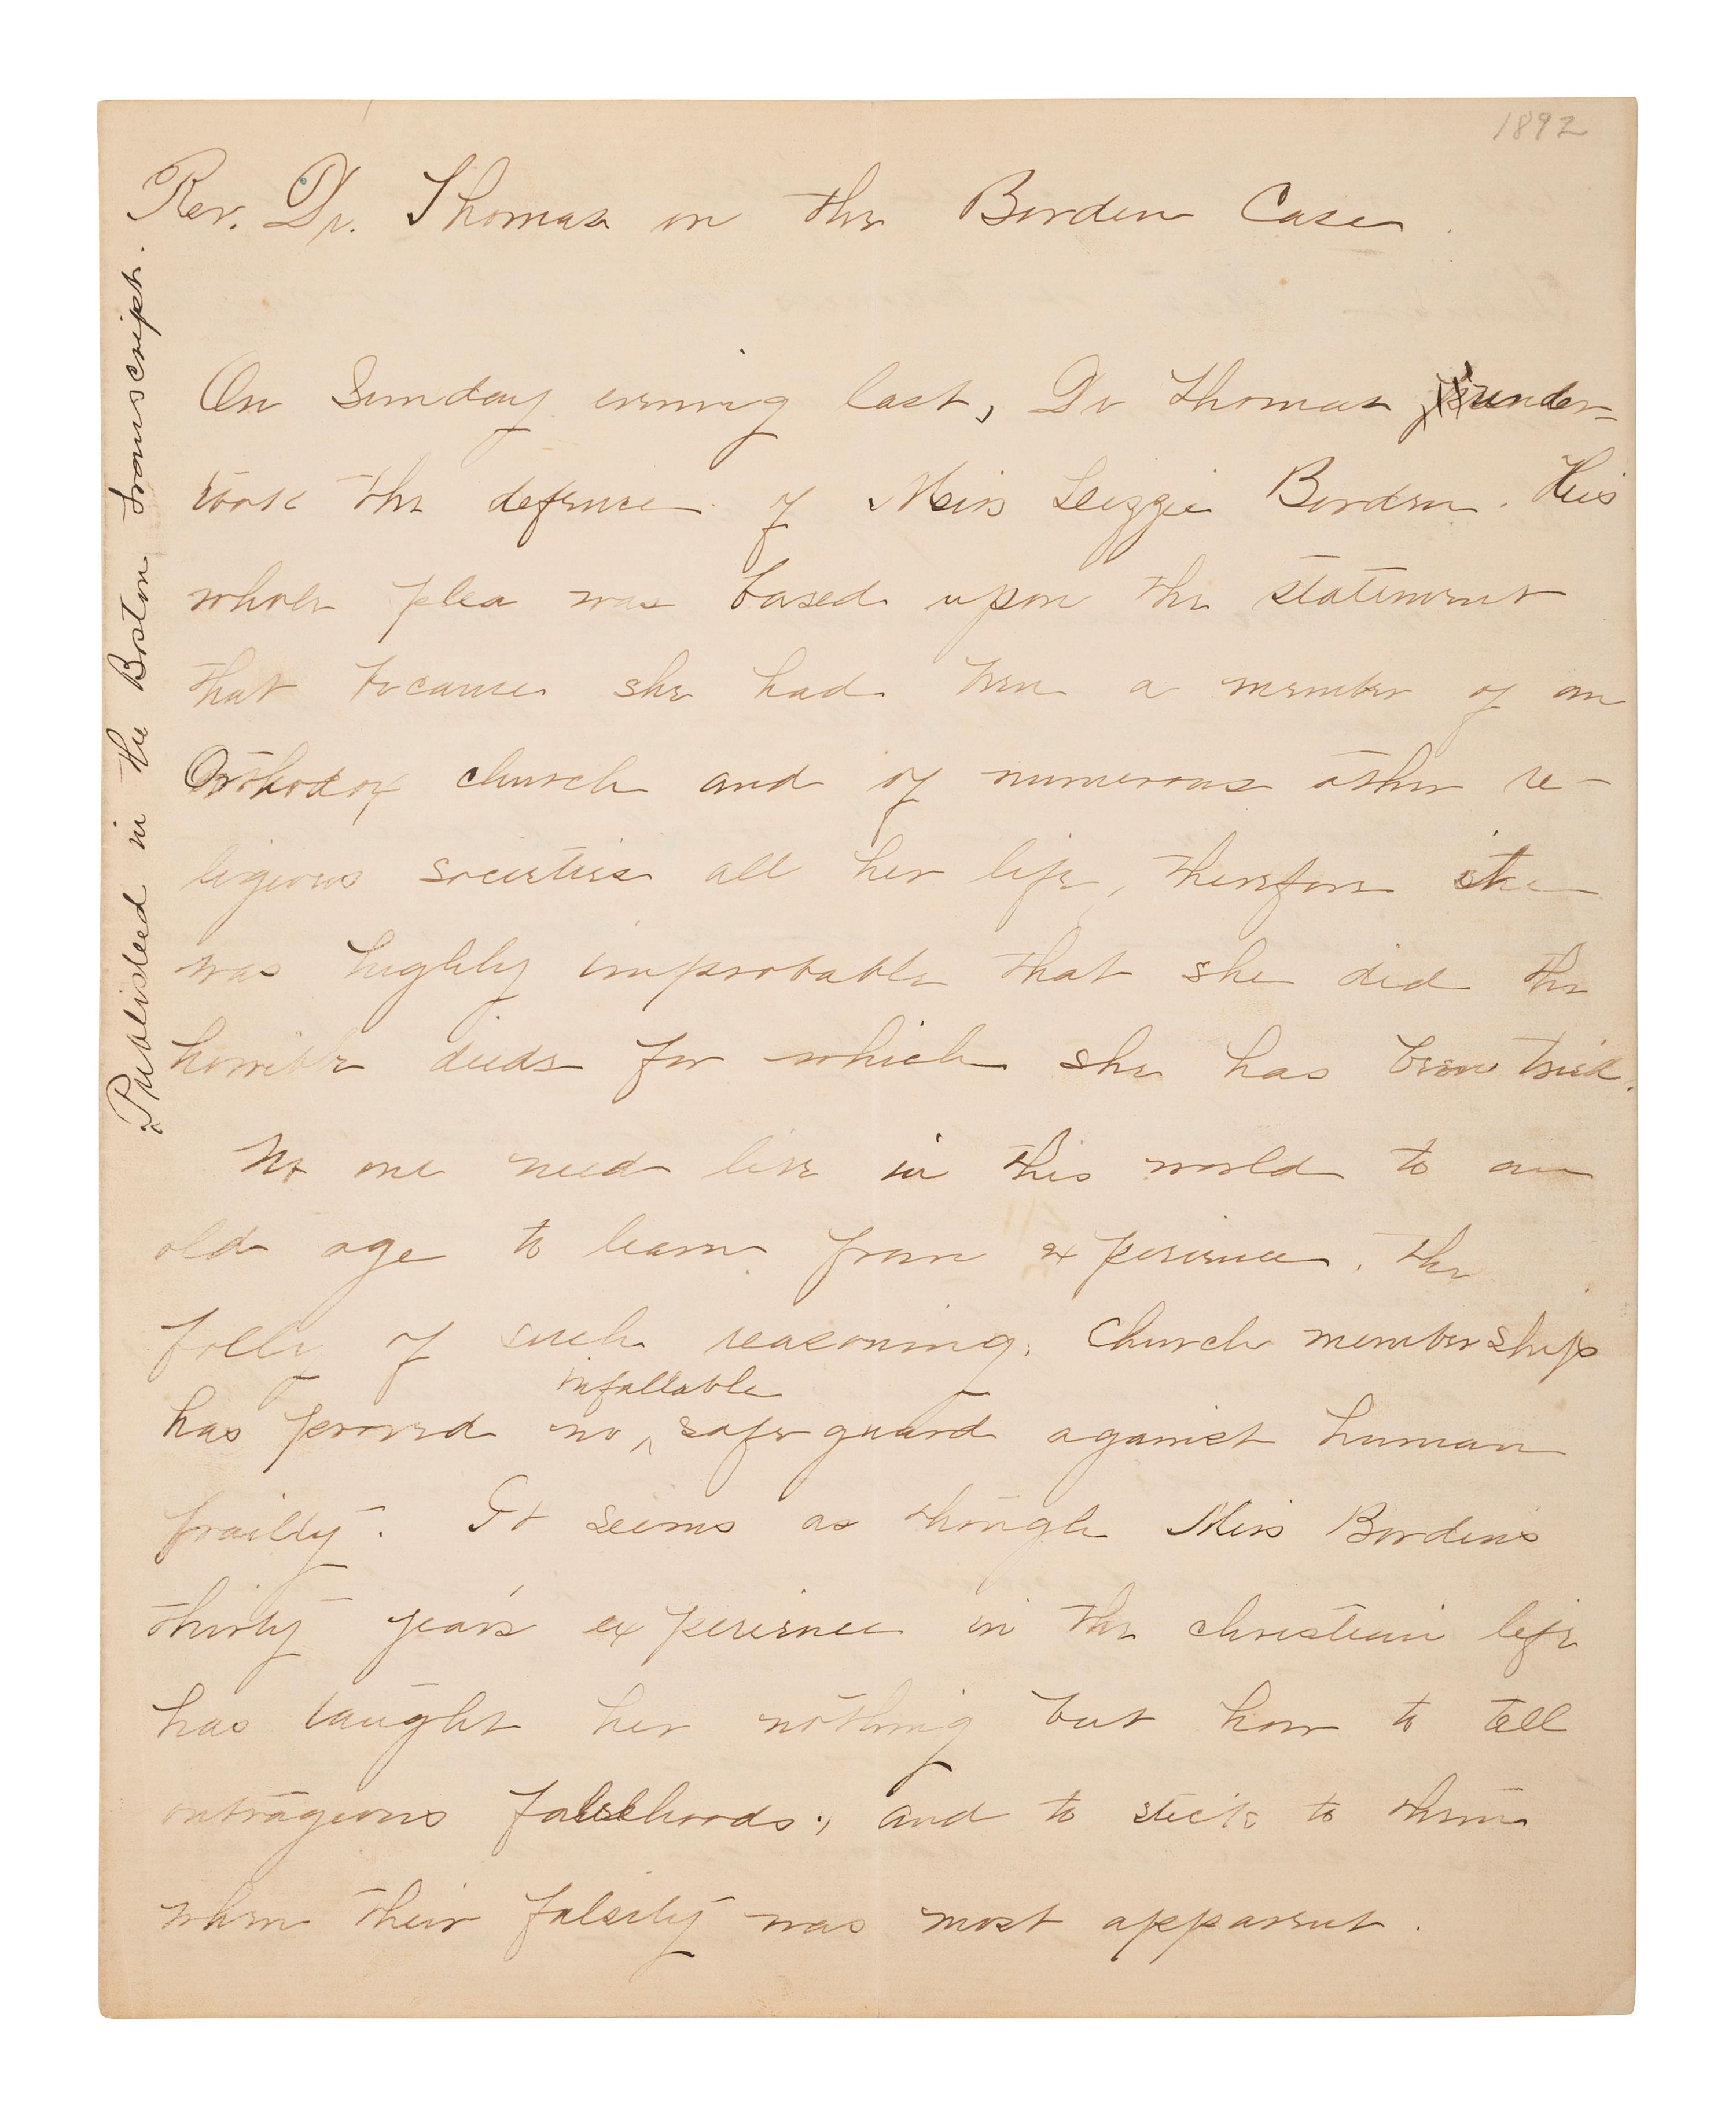 1892
Rev. Dr. Thomas on the Borden Case.
On Sunday evening last, Dr Thomas under-
took the defence of Miss Lizzie Borden. His
whole plea was based upon the statement
that because she had been a member of an
Orthodox church and of numerous other re-
ligious societies all her life, therefore it
was highly improbable that she did the
horrible deeds for which she has been tried.
No one need live in this world to an
old age to learn from experience, the
folly of such reasoning. Church memberships
infallable
has proved no ^ safe guard against human
frailty. It seems as though Miss Borden's
thirty year's experience in the christian life
has taught her nothing but how to tell
outrageous falsehoods, and to stick to them
when their falsity was most apparent.
Published in the Boston Transcript.